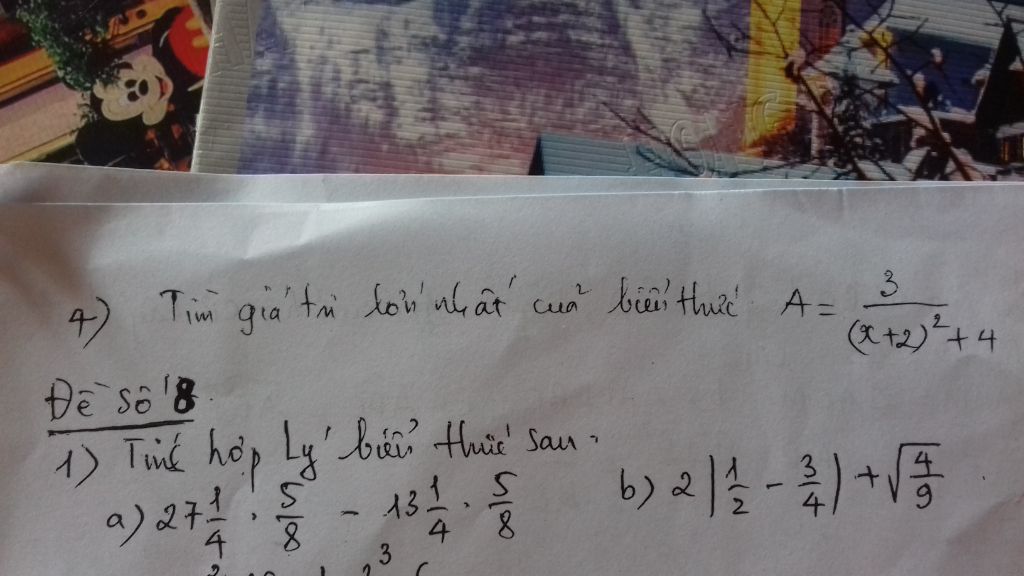 4) Tìm giá trị lớn nhất của biểu thức A = 3/((x+2)²+4)
Đề số 8.
1) Tính hợp lý biểu thức sau.
a) 27 1/4 . 5/8 - 13 1/4 . 5/8 b) 2|1/2 - 3/4| + √(4/9)